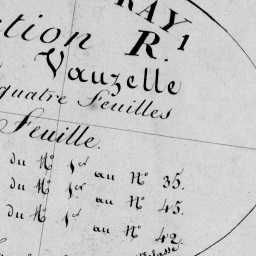 RAY¹
ction R.
Vauzelle
quatre feuilles
Feuille.
du Nº 1er au Nº 35.
du Nº 1er au Nº 45.
du Nº 1er au Nº 42.